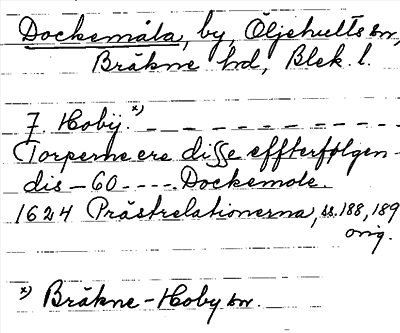 Dockemåla, by, Öljehults sn,
Bräkne hd, Blek. l.
J. Hobij. x) — — — — — — — —
Torperne ere disse effterfølgen-
dis — 60 — — — — Dockemole.
1624 Prästrelationerna, ss. 188, 189
orig.
x) Bräkne-Hoby sn.